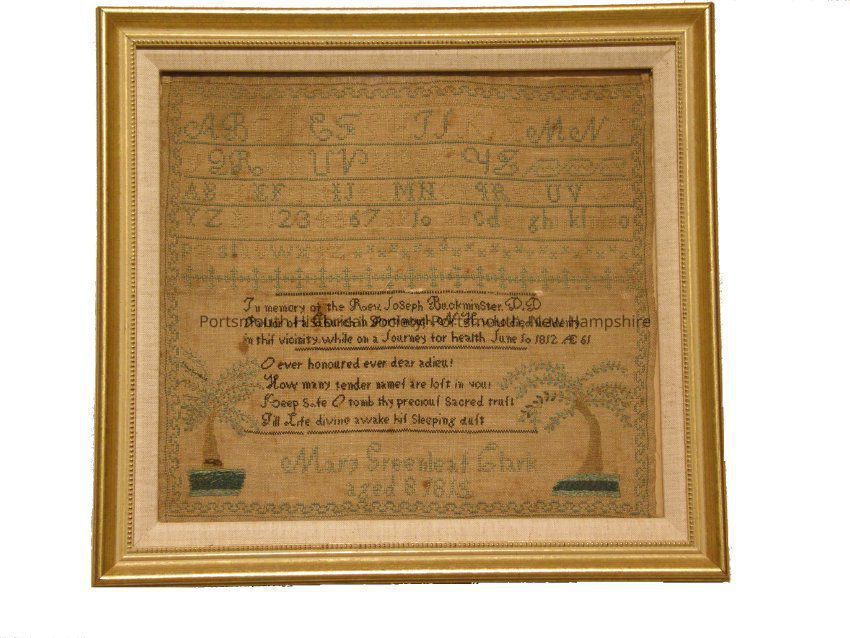 AB EF IJ MN
QR UV YZ
AB EF IJ MN QR UV
YZ 23 67 10 cd gh kl o
p st wx
In memory of the Rev. Joseph Buckminster. D.D
Portsmouth Historical Society, Portsmouth, New Hampshire
Pastor of a Church in Portsmouth N H who died suddenly
in this vicinity while on a Journey for health June 10 1812 Æ 61
O ever honoured ever dear adieu!
How many tender names are lost in you!
Keep safe O tomb thy precious sacred trust
Till Life divine awake his Sleeping dust
Mary Greenleaf Clark
aged 8 1813